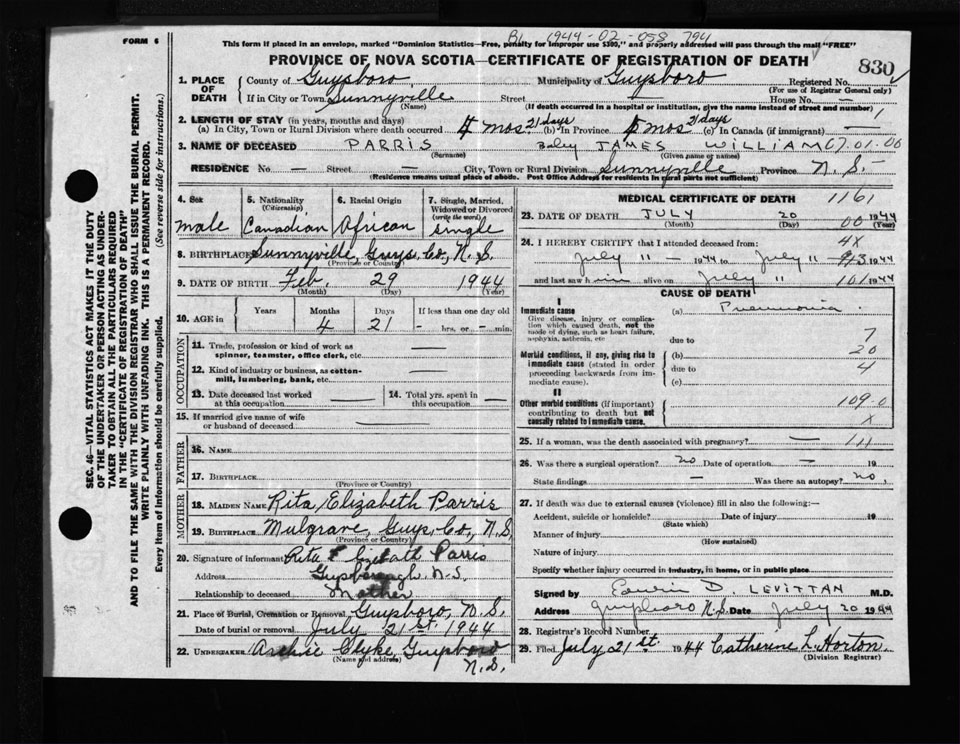 B1 1944-02-058 794
FORM 6
This form if placed in an envelope, marked "Dominion Statistics—Free, penalty for improper use $300," and properly addressed will pass through the mail "FREE"
PROVINCE OF NOVA SCOTIA—CERTIFICATE OF REGISTRATION OF DEATH
830
1. PLACE OF DEATH
County of Guysboro Municipality of Guysboro Registered No.
(For use of Registrar General only)
If in City or Town Sunnyville Street — House No. —
(Name) (If death occurred in a hospital or institution, give the name instead of street and number)
2. LENGTH OF STAY (in years, months and days)
(a) In City, Town or Rural Division where death occurred 4 mos 21 days (b) In Province 4 mos 21 days (c) In Canada (if immigrant) —
3. NAME OF DECEASED PARRIS Baby JAMES WILLIAM 67.01.00
(Surname) (Given name or names)
RESIDENCE No. — Street — City, Town or Rural Division Sunnyville Province N.S.
(Residence means usual place of abode. Post Office Address for residents in rural parts not sufficient)
4. Sex
male
5. Nationality (Citizenship)
Canadian
6. Racial Origin
African
7. Single, Married, Widowed or Divorced (write the word)
single
8. BIRTHPLACE Sunnyville, Guys. Co, N.S.
(Province or Country)
9. DATE OF BIRTH Feb. 29 1944
(Month) (Day) (Year)
10. AGE in Years Months Days If less than one day old
4 21 — hrs. or — min.
OCCUPATION
11. Trade, profession or kind of work as spinner, teamster, office clerk, etc. —
12. Kind of industry or business, as cotton-mill, lumbering, bank, etc. —
13. Date deceased last worked at this occupation —
14. Total yrs. spent in this occupation —
15. If married give name of wife or husband of deceased —
FATHER
16. NAME
17. BIRTHPLACE
(Province or Country)
MOTHER
18. MAIDEN NAME Rita Elizabeth Parris
19. BIRTHPLACE Mulgrave, Guys. Co, N.S.
(Province or Country)
20. Signature of informant Rita Elizabeth Parris
Address Guysborough. N.S.
Relationship to deceased Mother
21. Place of Burial, Cremation or Removal Guysboro, N.S.
Date of burial or removal July 21st. 1944
22. UNDERTAKER Archie Clyke, Guysboro
(Name and address) N.S.
MEDICAL CERTIFICATE OF DEATH 1161
23. DATE OF DEATH JULY 20 00 1944
(Month) (Day) (Year)
24. I HEREBY CERTIFY that I attended deceased from: 4X
July 11 — 1944 to July 11 1944
and last saw him alive on July 11 101 1944
CAUSE OF DEATH
I
Immediate cause
Give disease, injury or complication which caused death, not the mode of dying, such as heart failure, asphyxia, asthenia, etc
(a) Pneumonia
due to 7
Morbid conditions, if any, giving rise to immediate cause (stated in order proceeding backwards from immediate cause).
(b) 20
due to 4
(c)
II
Other morbid conditions (if important) contributing to death but not causally related to immediate cause.
109-0
X
25. If a woman, was the death associated with pregnancy? — 111
26. Was there a surgical operation? no Date of operation — 19
State findings — Was there an autopsy? no
27. If death was due to external causes (violence) fill in also the following:—
Accident, suicide or homicide? Date of injury 19
(State which)
Manner of injury
(How sustained)
Nature of injury
Specify whether injury occurred in industry, in home, or in public place
Signed by Edwin D. LEVITTAN M.D.
Address Guysboro N.S. Date July 20 1944
28. Registrar's Record Number
29. Filed July 21st 1944 Catherine L. Horton
(Division Registrar)
SEC. 46—VITAL STATISTICS ACT MAKES IT THE DUTY
OF THE UNDERTAKER OR PERSON ACTING AS UNDERTAKER
TO OBTAIN ALL THE PARTICULARS REQUIRED
IN THE "CERTIFICATE OF REGISTRATION OF DEATH"
AND TO FILE THE SAME WITH THE DIVISION REGISTRAR WHO SHALL ISSUE THE BURIAL PERMIT.
WRITE PLAINLY WITH UNFADING INK. THIS IS A PERMANENT RECORD.
Every item of information should be carefully supplied. (See reverse side for instructions.)